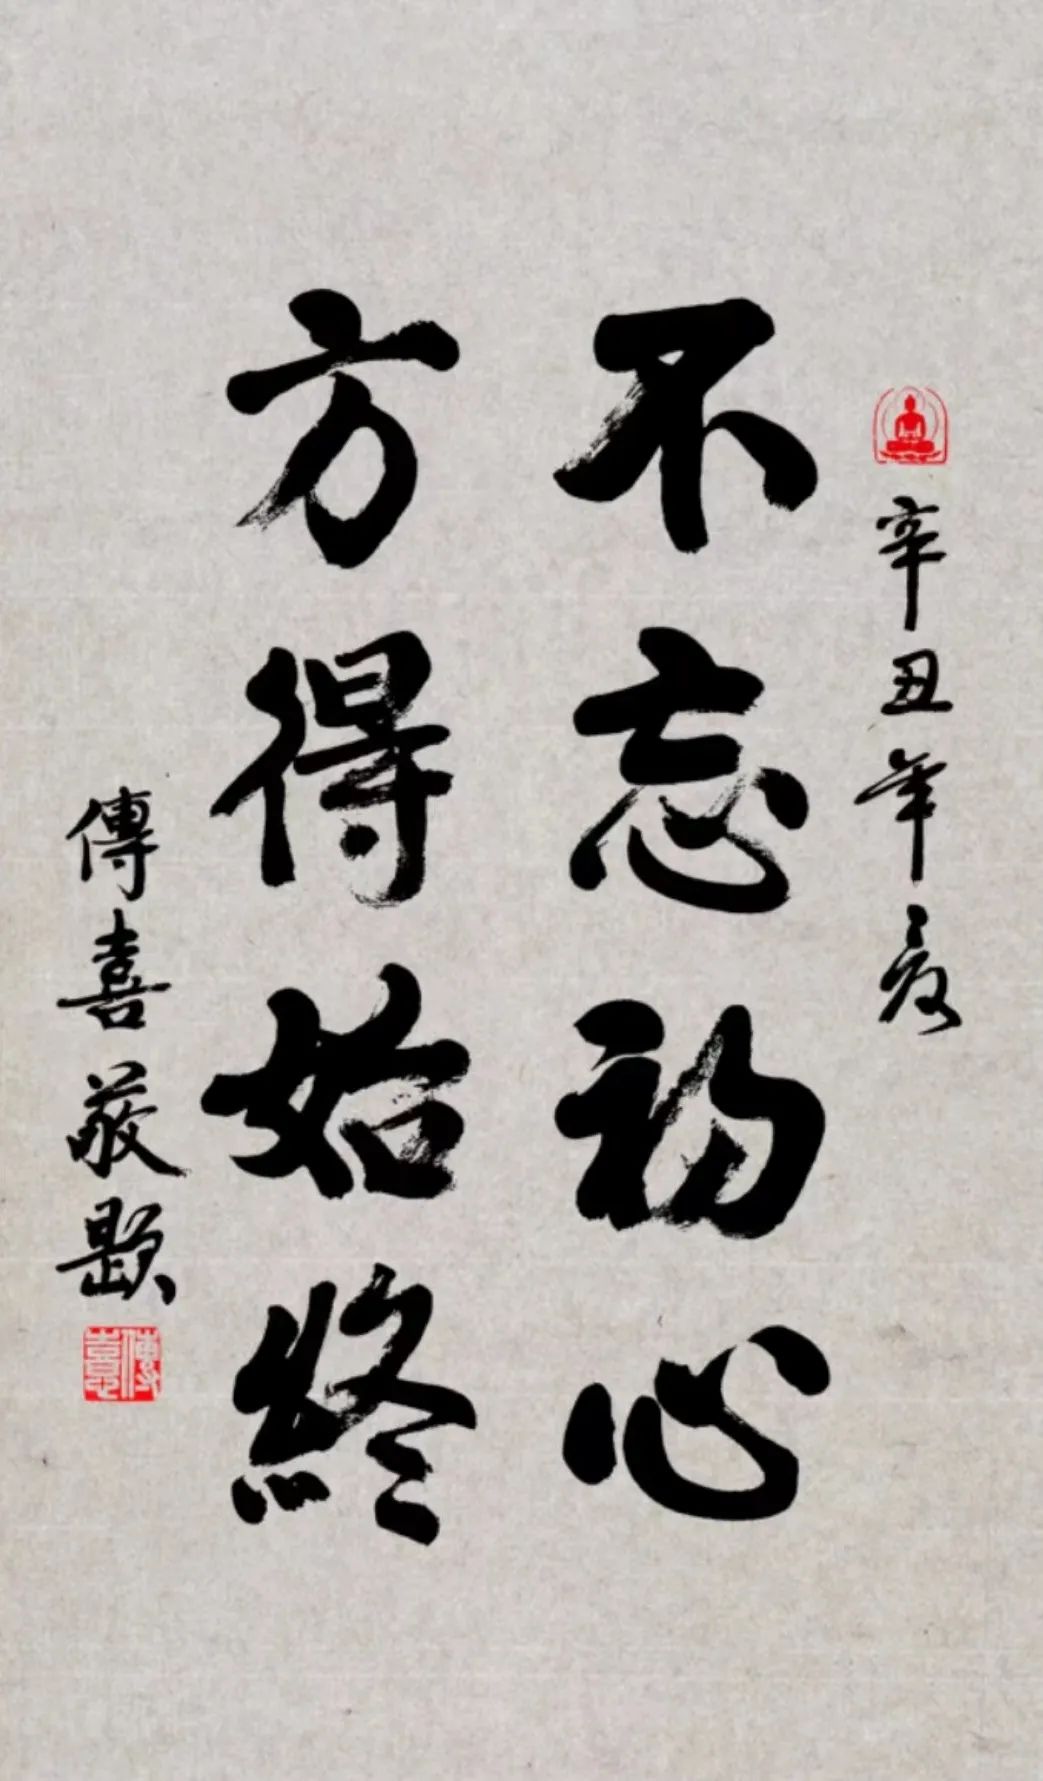 辛丑年夏
不忘初心
方得始終
傳喜敬題